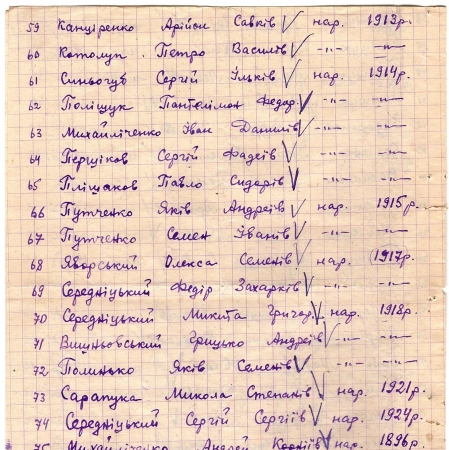 59 Канціренко Арійон Савків нар. 1913р.
60 Котолуп Петро Василів -"- -"-
61 Синьогуб Сергій Ільків нар. 1914р.
62 Поліщук Пантелімон Федор. -"- -"-
63 Михайліченко Іван Данилів -"- -"-
64 Перціков Сергій Фадеїв -"- -"-
65 Пліщаков Павло Сидорів -"- -"-
66 Путченко Яків Андреїв нар. 1915р.
67 Путченко Семен Іванів -"- -"-
68 Яворський Олекса Семенів нар. 1917р.
69 Середніцький Федір Захарків -"- -"-
70 Середніцький Микита Григор. нар. 1918р.
71 Вишньовський Грицько Андреїв -"- -"-
72 Полинько Яків Семенів -"- -"-
73 Сарапука Микола Степанів нар. 1921р.
74 Середніцький Сергій Сергіїв нар. 1924р.
75 Михайліченко Андрей нар. 1896р.